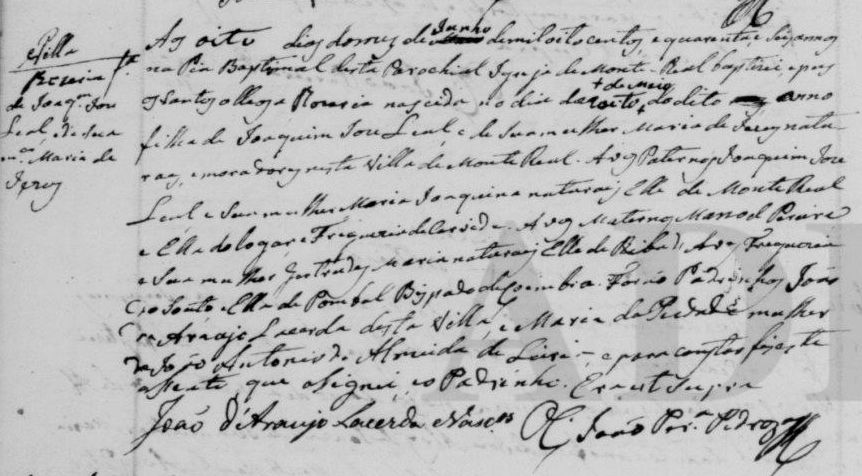 Villa
Rosaria f.ª
de Joaq.m Jose
Leal e de Sua
m.er Maria de
Jesus
Aos oito dias do mes de Junho de mil oito centos e quarenta e seis annos
na Pia Baptismal desta Parochial Igreja de Monte Real baptizei e pus
os Santos olleos a Rosaria nascida no dia dezoito + de Maio + do dito anno
filha de Joaquim Jose Leal e de Sua mulher Maria de Jesus natu-
raes, e moradores nesta Villa de Monte Real. Avos Paternos Joaquim Jose
Leal e Sua mulher Maria Joaquina naturaes Elle de Monte Real
e Ella do logar e Freguezia de Carvide. Avos Maternos Manoel Pereira
e Sua mulher Gertrudes Maria naturaes Elle de Riba d'Aves Freguezia
do Souto e Ella de Pombal Bispado de Coimbra. Forão Padrinhos João
de Araujo Lacerda desta Villa, e Maria da Piedade mulher
de João Antonio de Almeida de Leiria, e para constar fiz este
assento que asignei, e o Padrinho. Era ut Supra
João d'Araujo Lacerda Nasc.to O C. João Per.ª Pedroza
AD